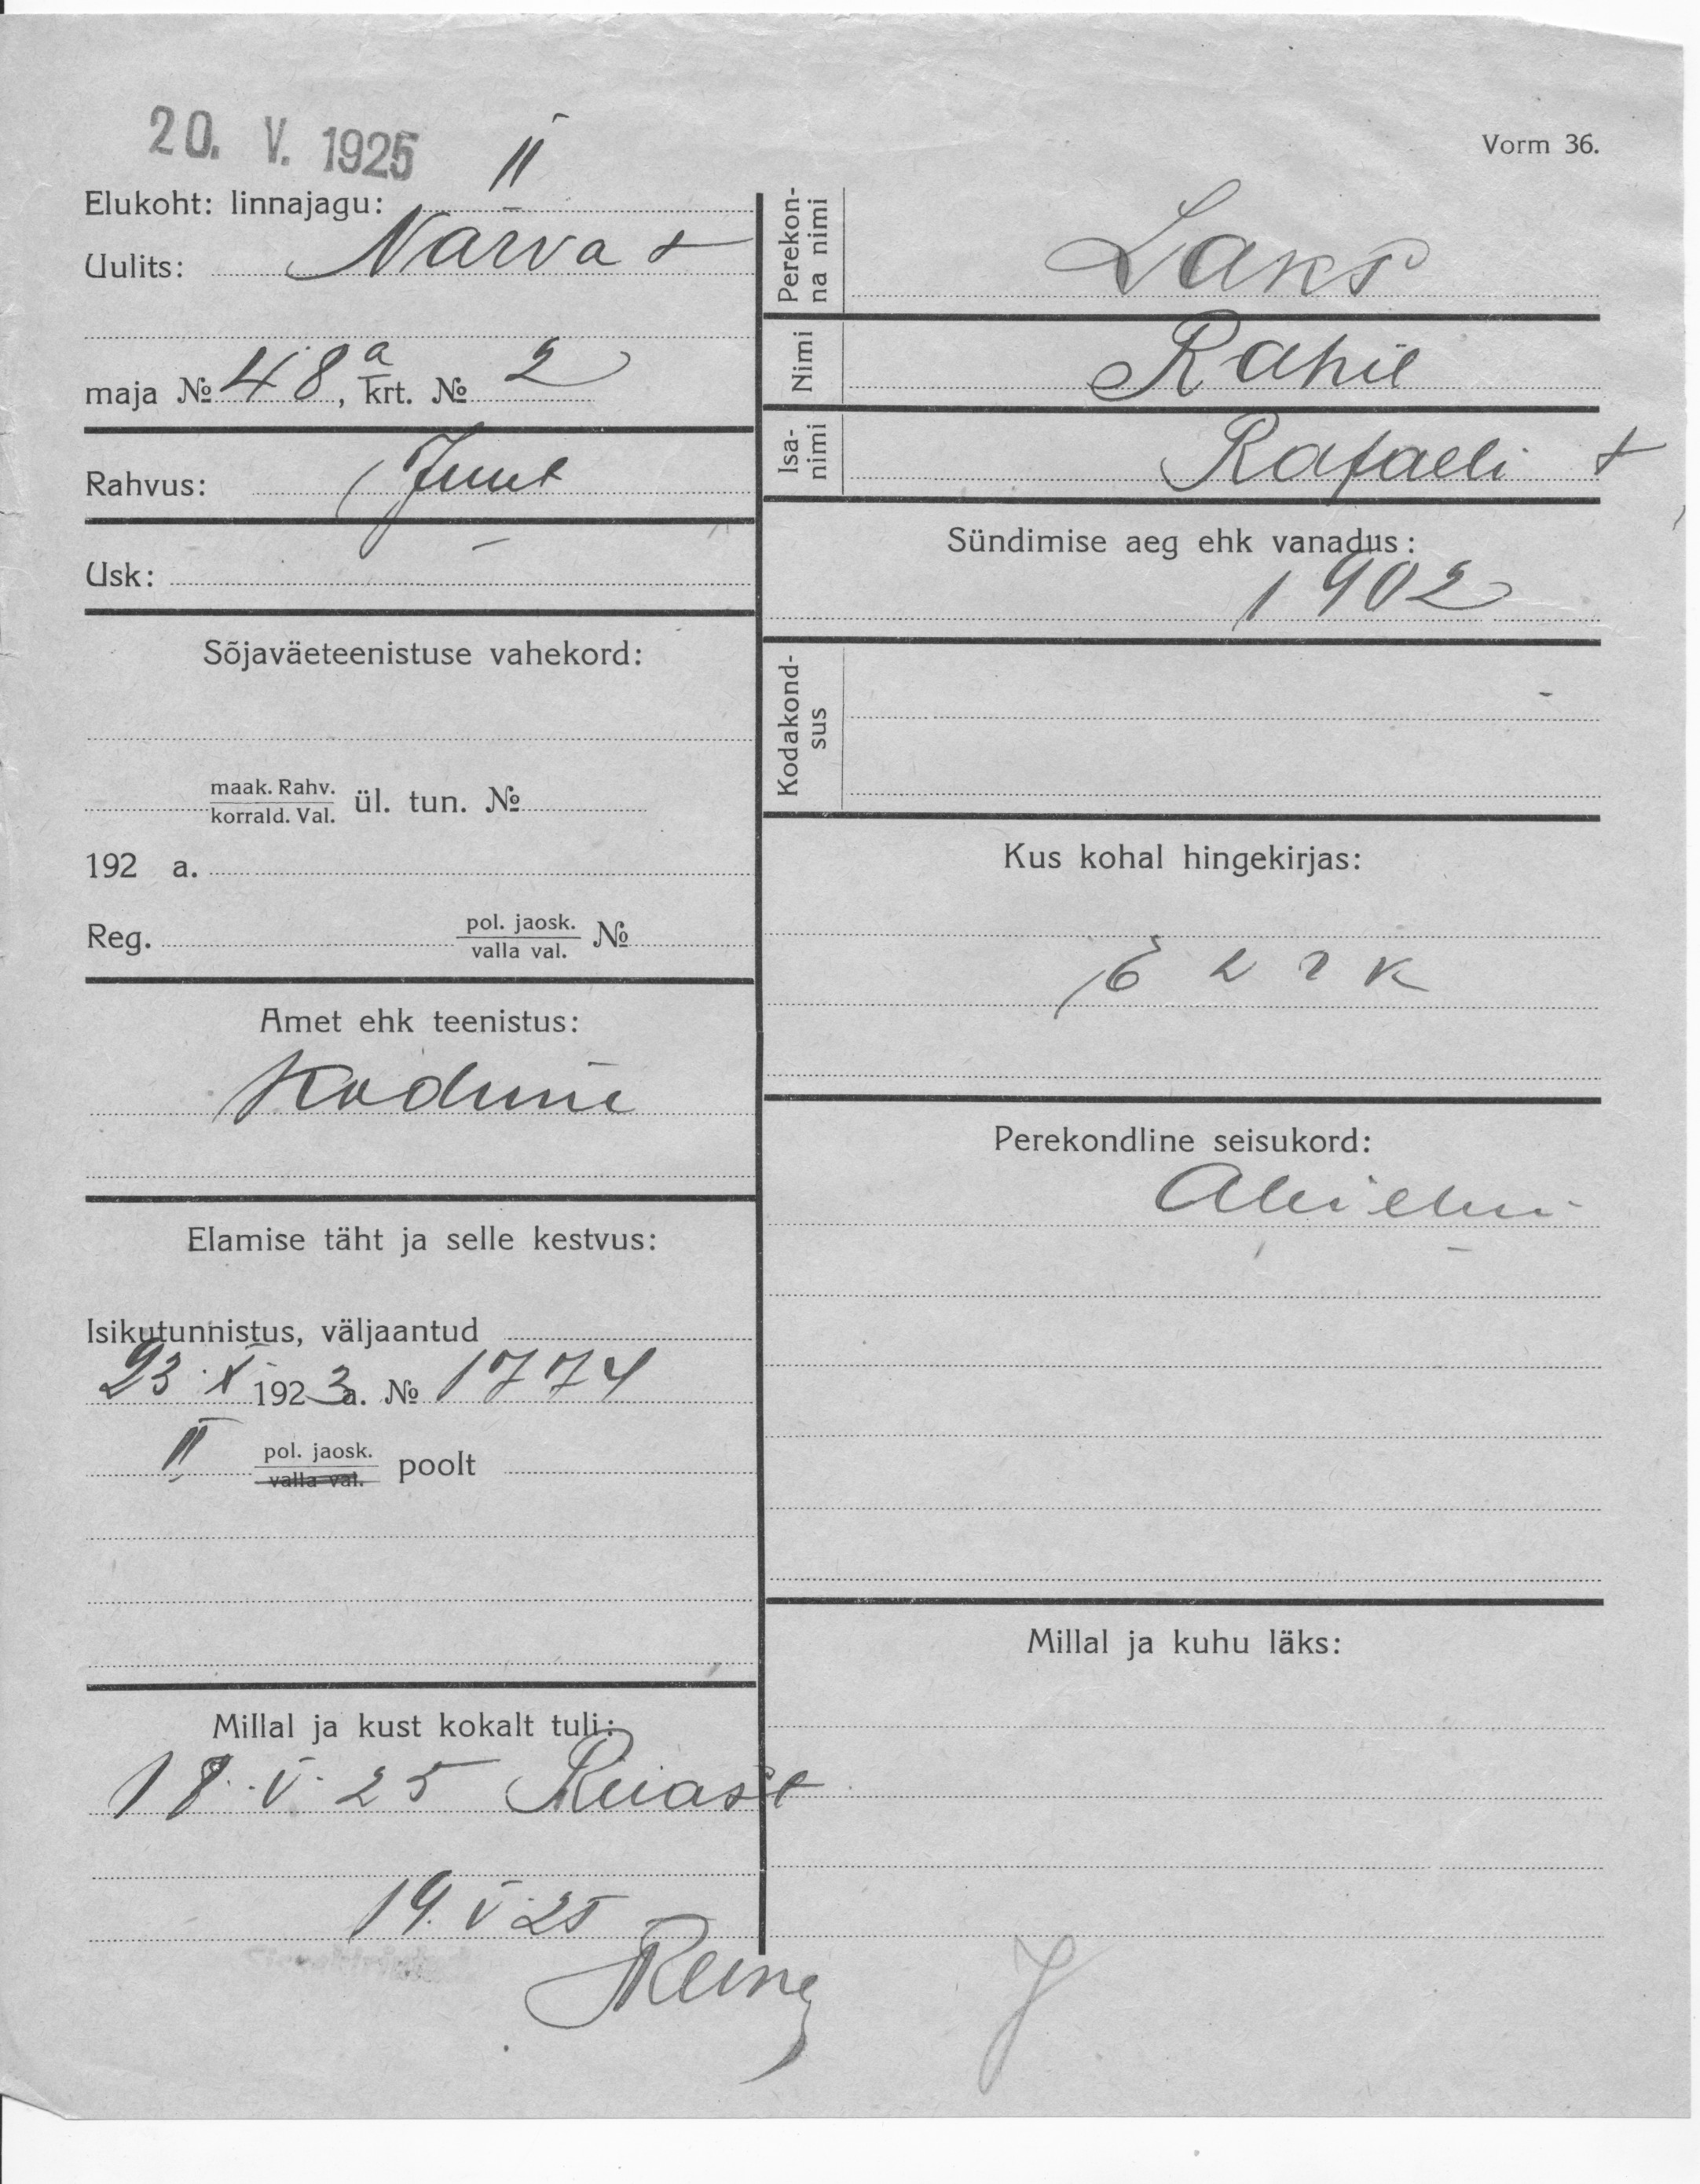 20. V. 1925
Vorm 36.
Elukoht: linnajagu: II
Uulits: Narva +
maja № 48a, krt. № 2
Rahvus: Juut
Usk: —
Sõjaväeteenistuse vahekord:
maak. Rahv.
korrald. Val. ül. tun. №
192 a.
Reg. pol. jaosk.
valla val. №
Amet ehk teenistus:
Kodune
Elamise täht ja selle kestvus:
Isikutunnistus, väljaantud
23 X 1923 a. № 1774
II pol. jaosk.
valla val. poolt
Millal ja kust kokalt tuli:
18. V. 25 Riiast
19. V 25
Perekon-
na nimi
Laks
Nimi Rahil
Isa-
nimi
Rafaeli +
Sündimise aeg ehk vanadus:
1902
Kodakond-
sus
Kus kohal hingekirjas:
Perekondline seisukord:
Abielus
Millal ja kuhu läks:
J